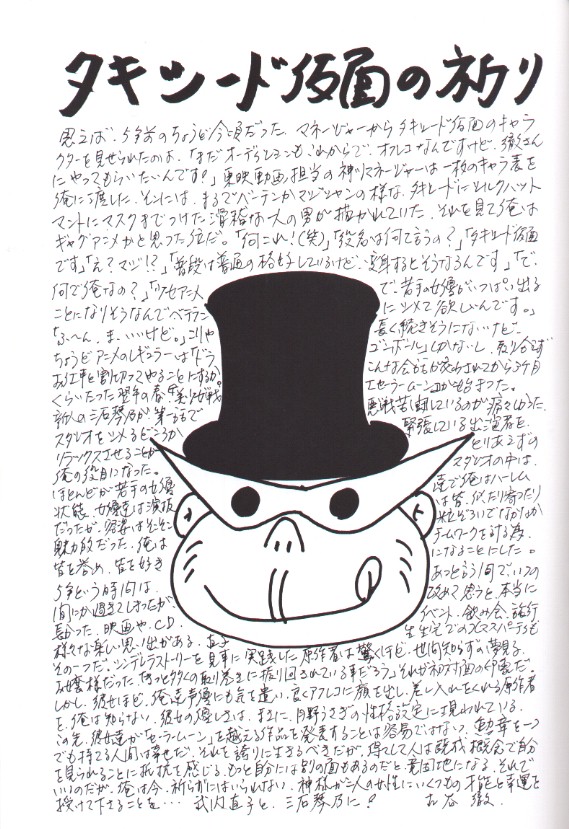 タキシード仮面の祈り
思えば、5年前のちょうど今頃だった。マネージャーからタキシード仮面のキャラ
クターを見せられたのは。「まだオーディションも、これからで、オフレコなんですけど、徹さん
にやってもらいたいんです。」東映動画担当の神リマネージャーは一枚のキャラ表を
俺に渡した。そこには、まるでペテンかマジシャンの様な、タキシードにシルクハット
マントにマスクまでつけた滑稽な一人の男が描かれていた。それを見て俺は
ギャグアニメかと思った位だ。「何これ!(笑)」「役名は何て言うの?」「タキシード仮面
です」「え?マジ!?」「普段は普通の格好しているけど、変身するとそうなるんです」「で、
何で俺なの?」「リセアニメ で、若手の女優がいっぱい出る
ことになりそうなんでベテラン にシメて欲しいんです。」
「ふ〜ん、ま、いいけど。」こりゃ 長く続きそうにないけど、
ちょうどアニメのレギュラーは「ドラ ゴンボール」しかないし、取り合えず
ある工事と割切ってやることにするか。 こんな会話が交わされてから3ヶ月
くらいたった翌年の春「美少女戦 士セーラームーン」が始まった。
新人の三石琴乃が第一話で 悪戦苦闘しているのが痛々しかった。
スタジオをシメるどころか 緊張している出演者を、
リラックスさせることが とりあえずの
俺の役目になった。 スタジオの中は、
ほとんどが若手の女優 達で俺はハーレム
状態。女優達は演技 は皆、似たり寄ったり
だったが、容姿はそこそこ 粒ぞろいですこぶる
魅力的だった。俺は チームワークを計る為、
皆を誉め、皆を好き になることにした。
5年という時間は、 あっという間で、いつの
間にか過ぎてしまったが、 改めて思うと、本当に
長かった。映画や、CD、 イベント、飲み会、旅行
様々な楽しい思い出がある。直子 先生宅でのXマスパーティも
その一つだ。シンデレラストーリーを見事に実践した原作者は驚くほど、世間知らずの夢見る
お嬢様だった。きっと多くの取り巻きに振り回されている事だろう。それが初対面の印象だ。
しかし、彼女ほど、俺達声優にも気を遣い、良くアフレコに顔を出し、差し入れをくれる原作者
を、俺は知らない。彼女の優しさは、まさに、月野うさぎの性格設定に現われている。
この先、彼女達が「セーラームーン」を越える作品を発表することは容易ではない。勲章を一つ
でも持てる人間は幸せだ。それを誇りに生きるべきだが、得てして人は既成概念で自分
を見られることに抵抗を感じる。もっと自分には別の面もあるのだと意固地になる。それで
いいのだが、俺は今、祈らずにはいられない。神様が二人の女性にいくつもの才能と幸運を
授けて下さることを… 武内直子と、三石琴乃に! 古谷 徹.